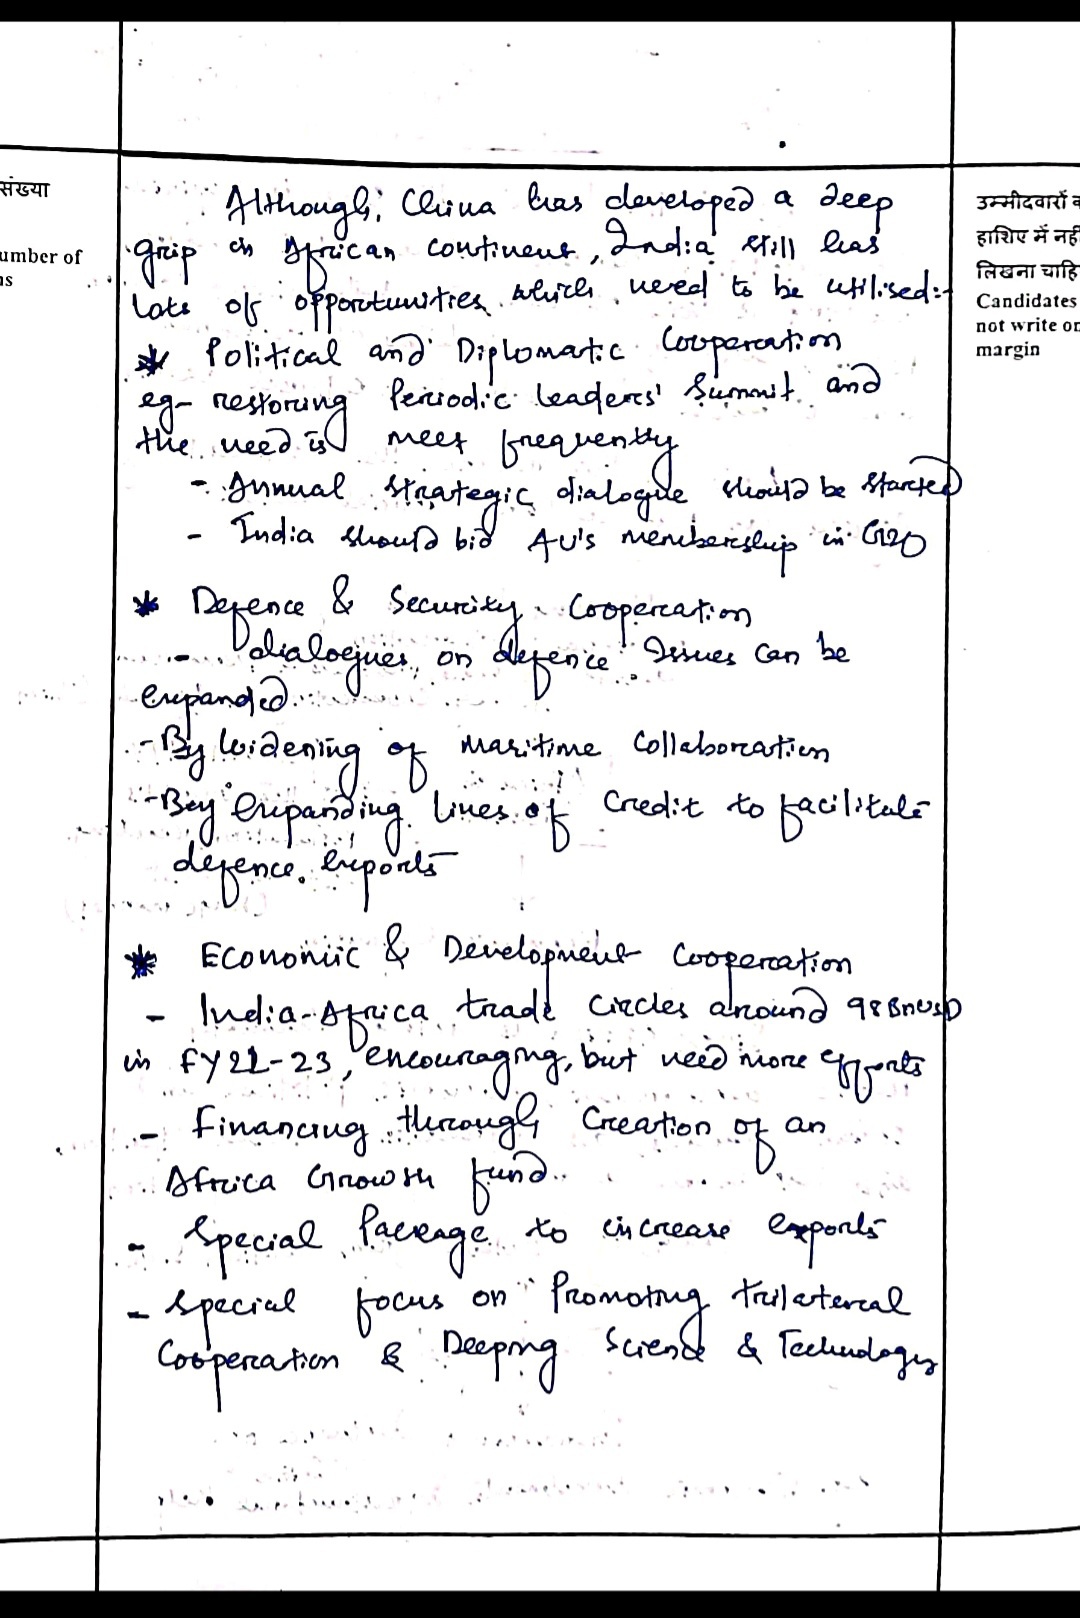 संख्या
umber of
ns
उम्मीदवारों
हाशिए में नहीं
लिखना चाहि
Candidates
not write on
margin
Although, China has developed a deep
grip on African continent, India still has
lots of opportunities which need to be utilised:-
* Political and Diplomatic Cooperation
eg- restoring Periodic leaders' Summit and
the need is meet frequently
- Annual strategic dialogue should be started
- India should bid AU's membership in G20
* Defence & Security Cooperation
- dialogues on defence Issues can be
expanded.
- By widening of maritime collaboration
- By expanding lines of credit to facilitate
defence exports
* Economic & Development Cooperation
- India-Africa trade circles around 98BnUSD
in FY22-23, encouraging, but need more efforts
- Financing through Creation of an
Africa Growth fund.
- Special Package to increase exports
- Special focus on Promoting trilateral
Cooperation & Deeping Science & Technology